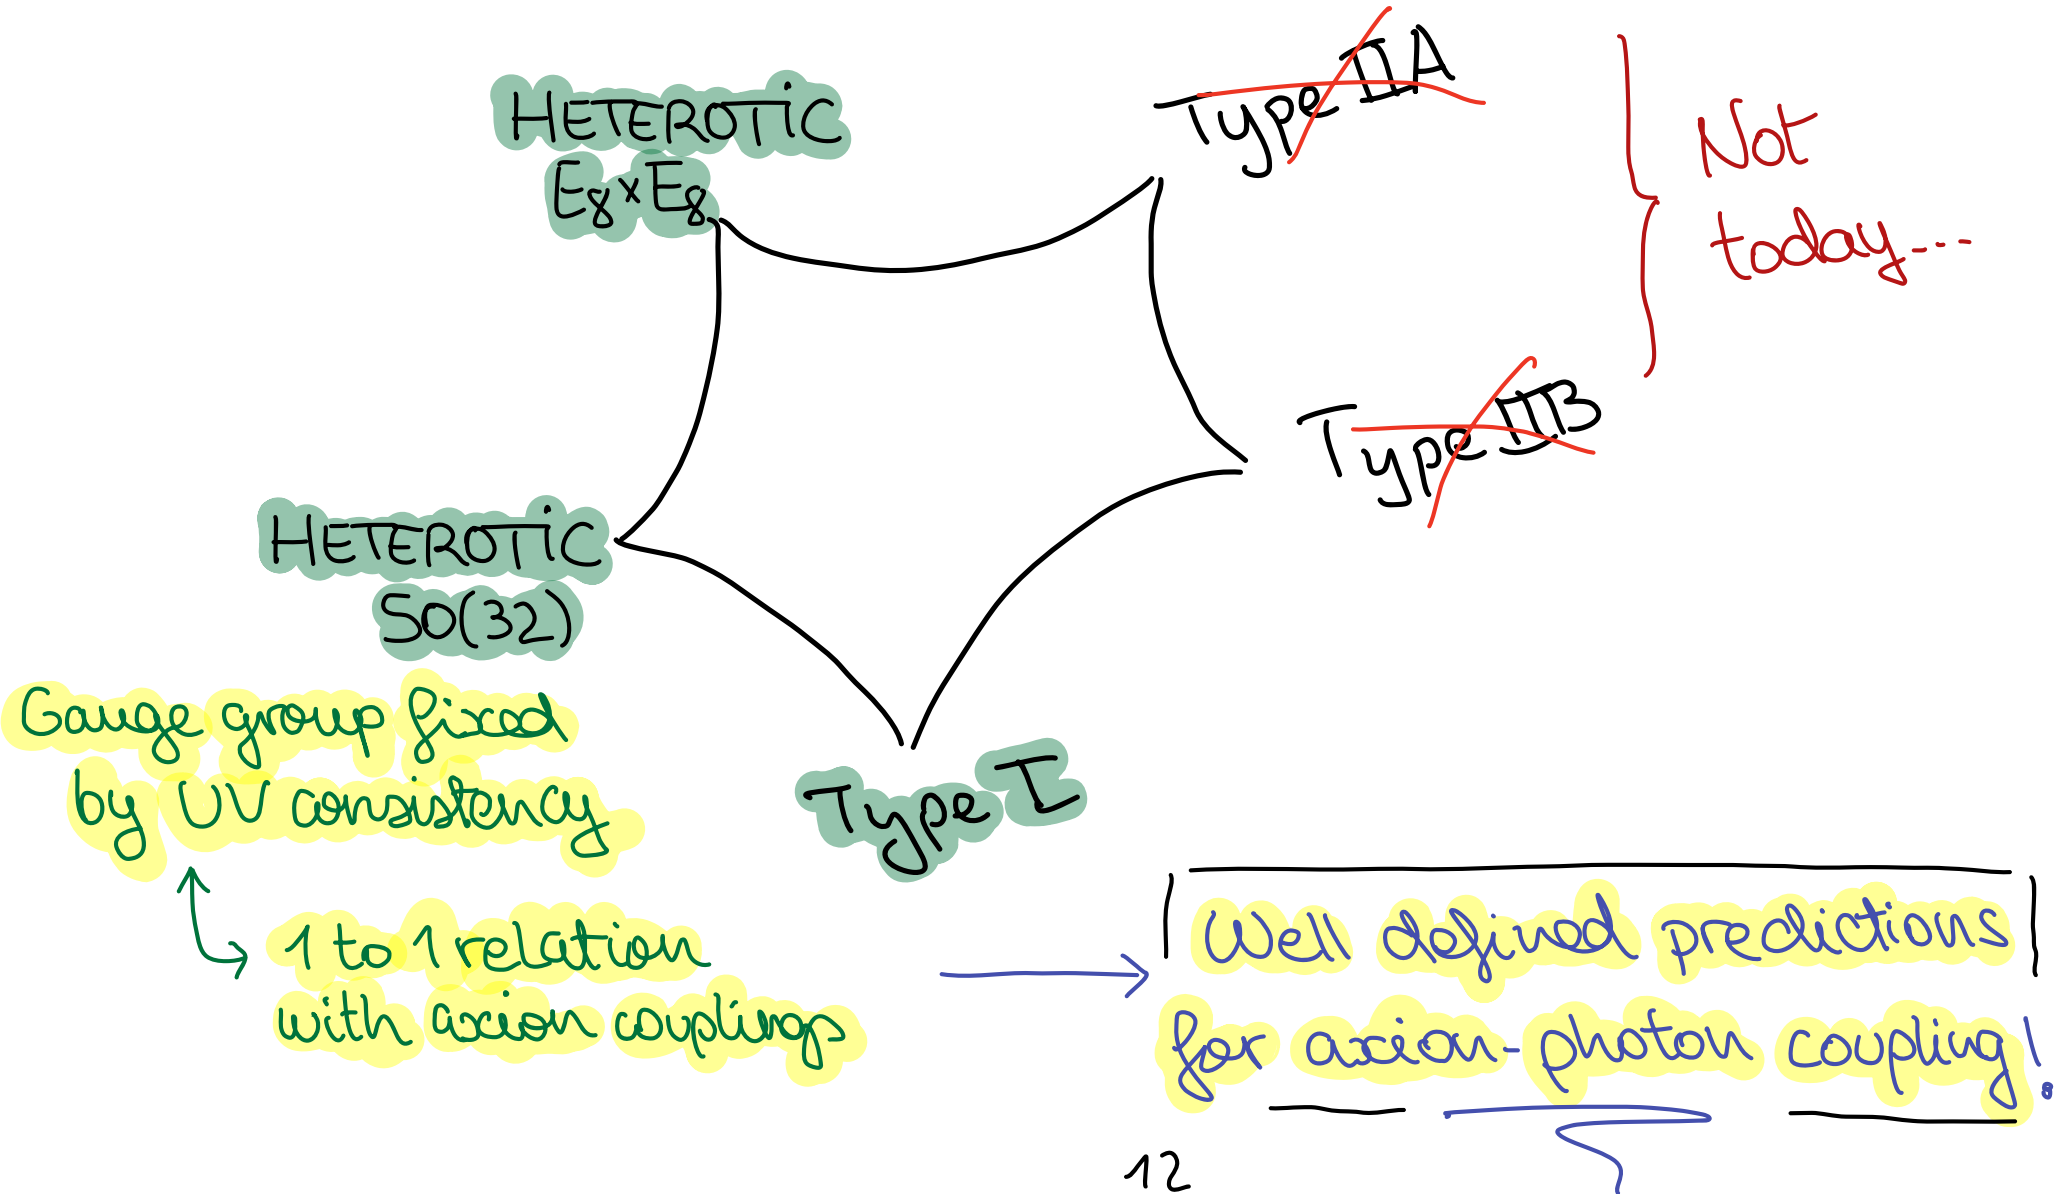 HETEROTIC
E8 x E8
Type IIA
Not
today...
Type IIB
HETEROTIC
SO(32)
Type I
Gauge group fixed
by UV consistency
1 to 1 relation
with axion couplings
Well defined predictions
for axion-photon coupling!
12